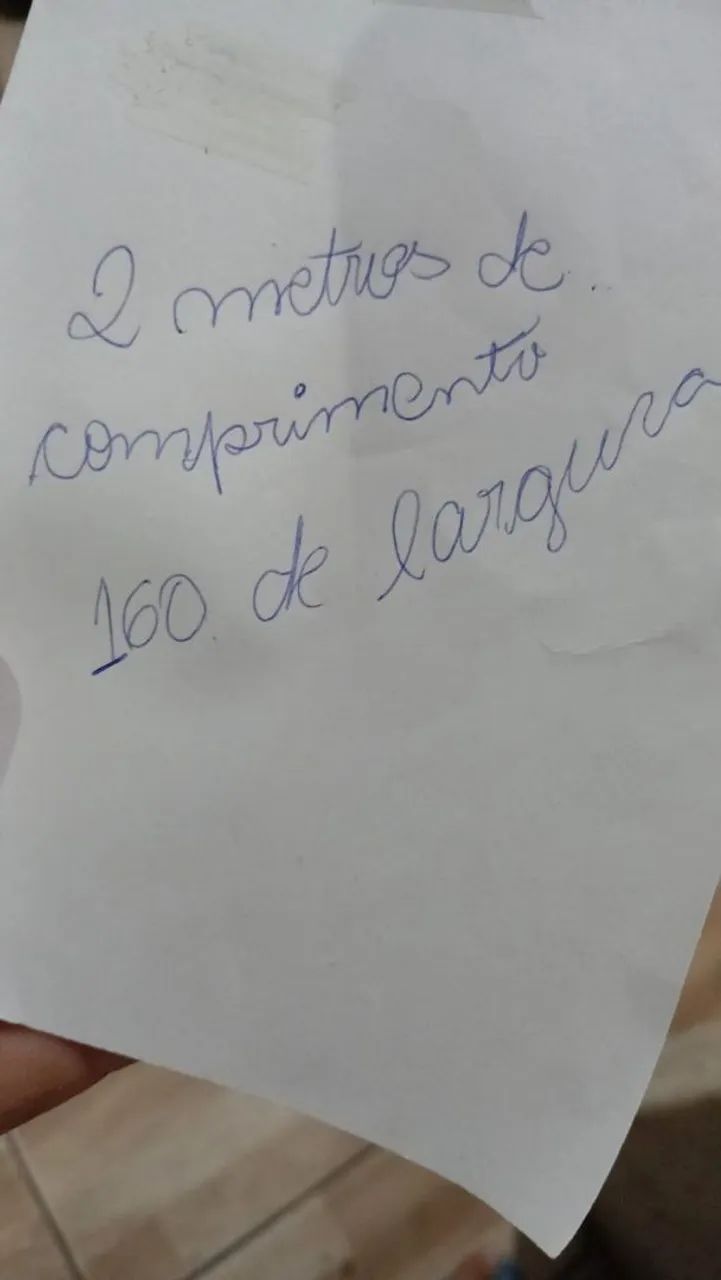 2 metros de
comprimento
160 de largura